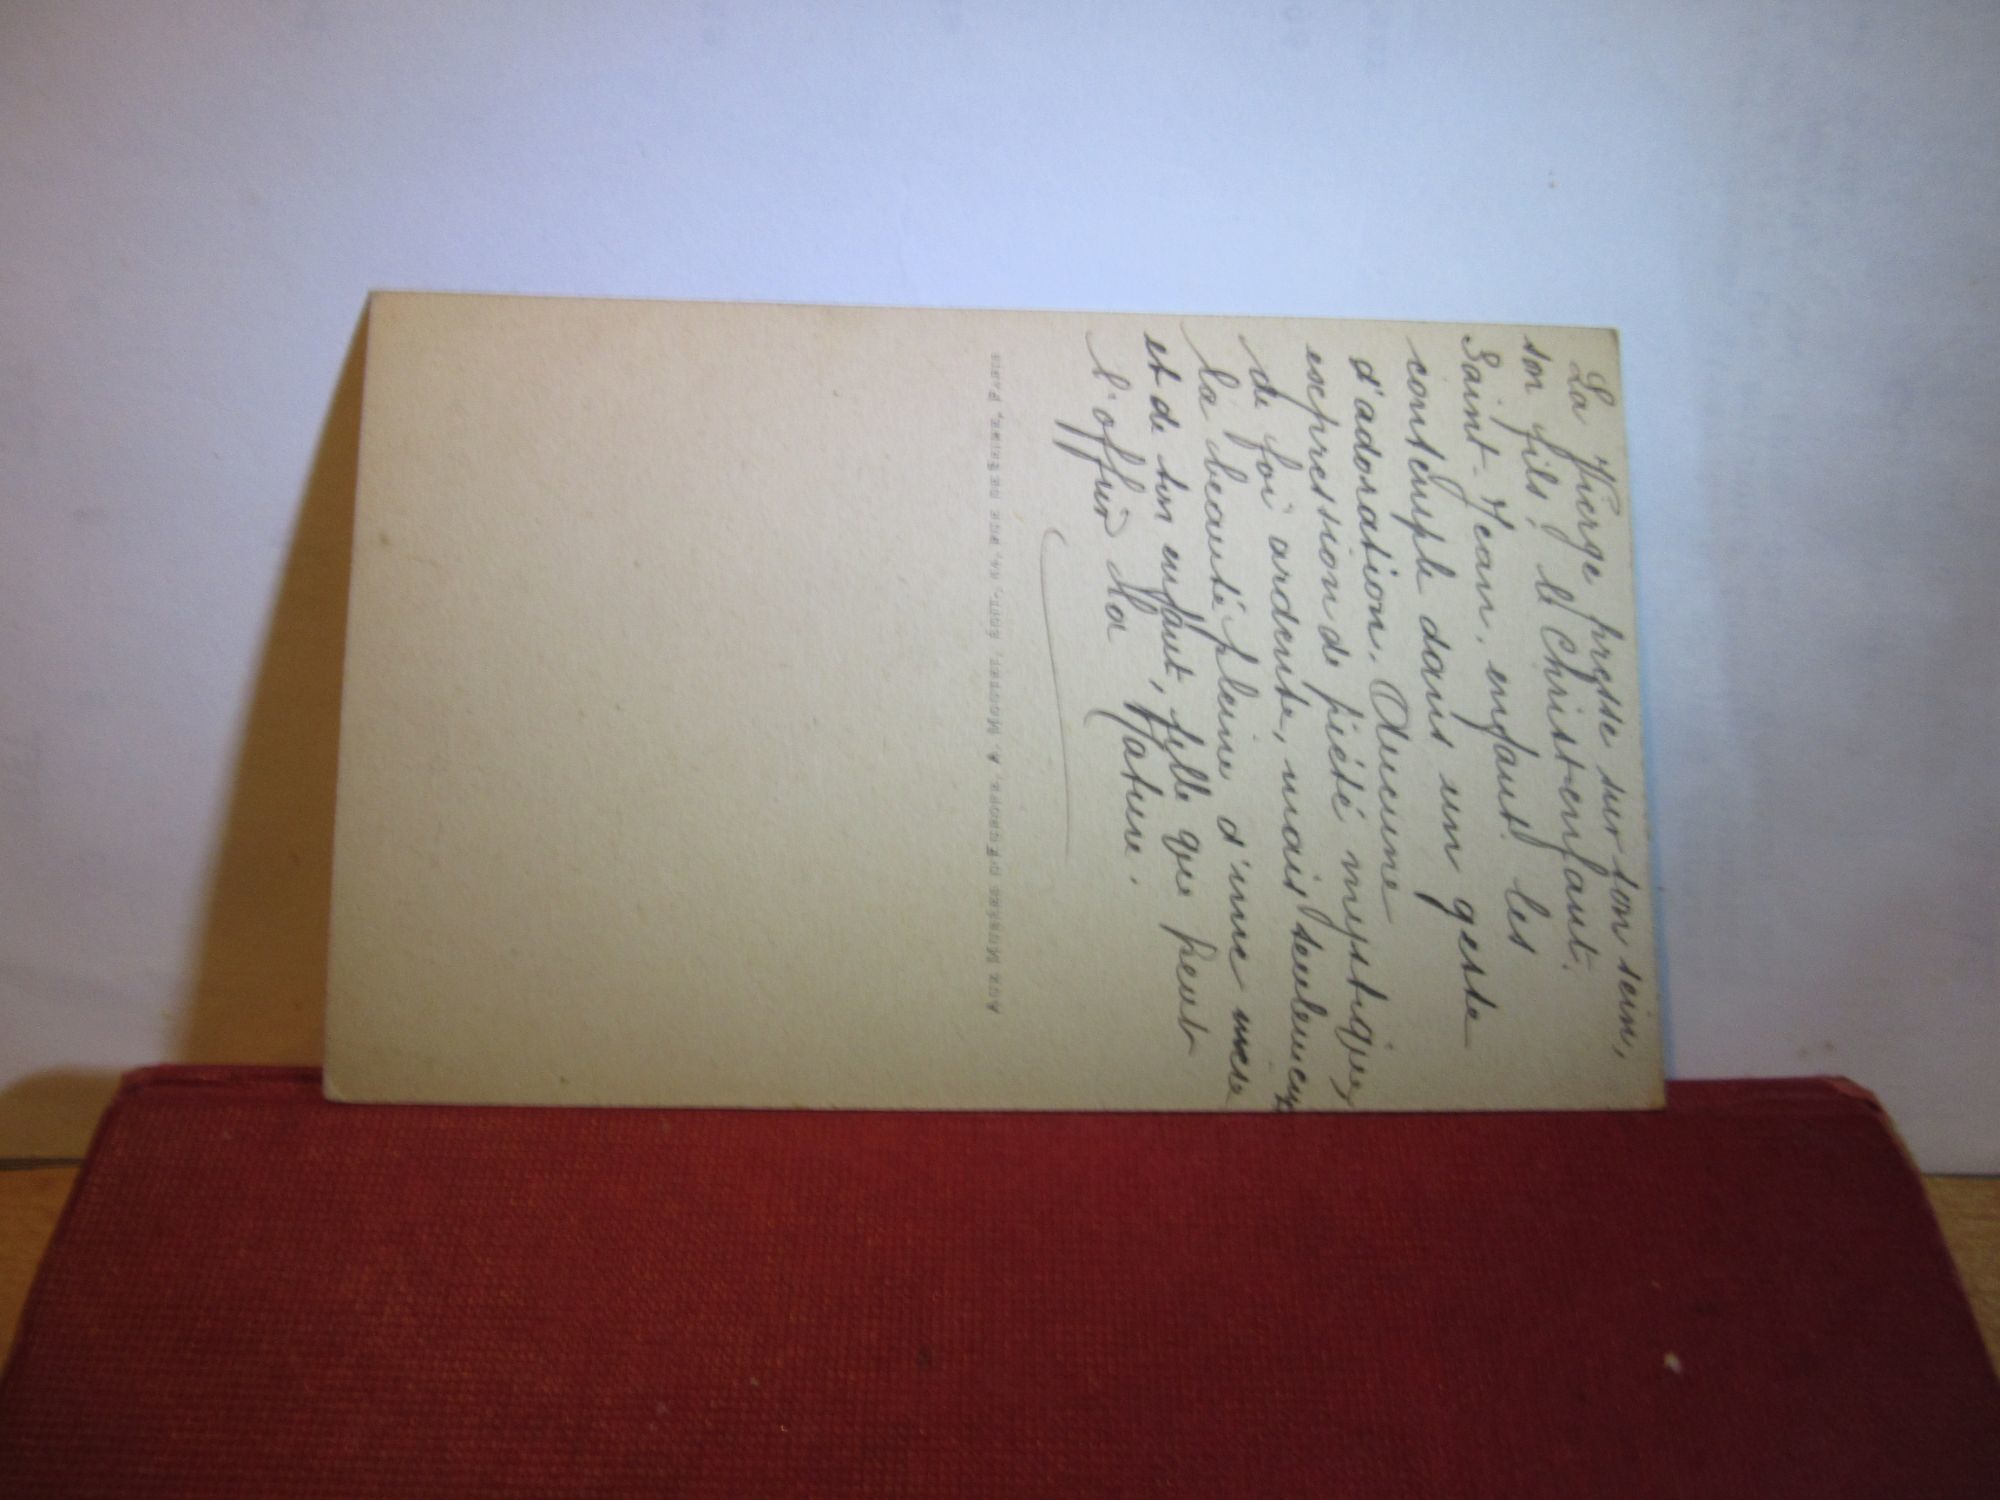 La Vierge presse sur son sein,
son fils, le Christ-enfant.
Saint-Jean, enfant les
contemple dans un geste
d'adoration. Aucune
expression de piété mystique,
de foi ardente, mais seulement
la beauté pleine d'une mère
et de son enfant, telle que peut
l'offrir la Nature.
AUX MUSÉES D'EUROPE, A. MOUTET, SUC., 137, RUE DE SÈVRES, PARIS